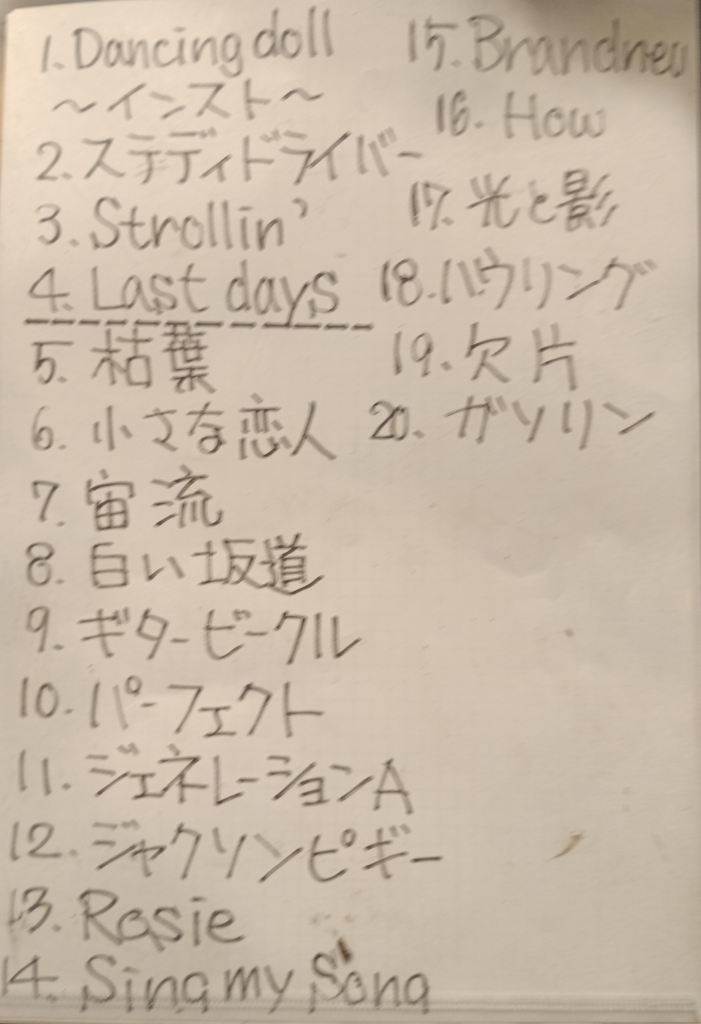 1. Dancing doll
～インスト～
2. ステディドライバー
3. Strollin'
4. Last days
5. 枯葉
6. 小さな恋人
7. 宙流
8. 白い坂道
9. ギタービークル
10. パーフェクト
11. ジェネレーションA
12. ジャクソンピギー
13. Rosie
14. Sing my Song
15. Brandnew
16. How
17. 光と影
18. ハウリング
19. 欠片
20. ガソリン